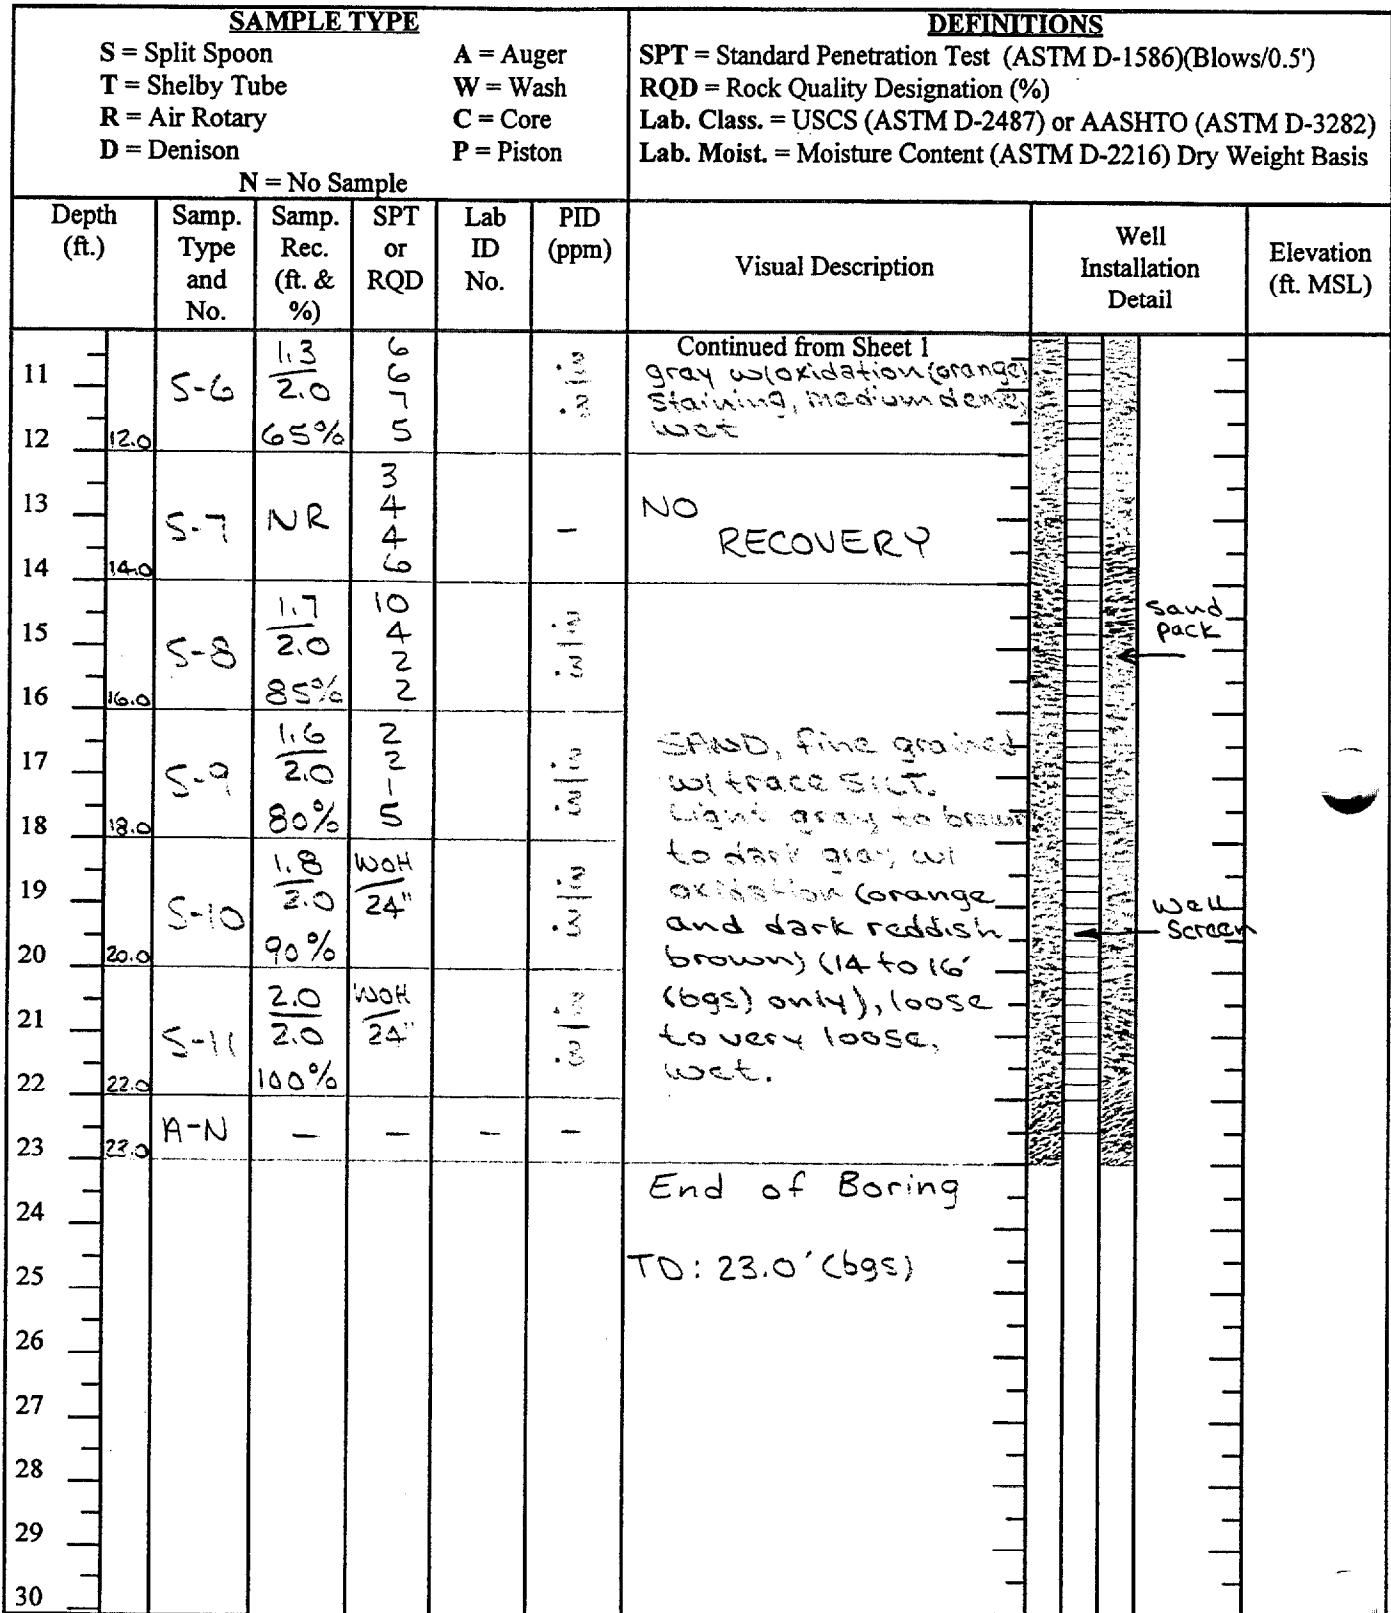 SAMPLE TYPE
S = Split Spoon A = Auger
T = Shelby Tube W = Wash
R = Air Rotary C = Core
D = Denison P = Piston
N = No Sample
DEFINITIONS
SPT = Standard Penetration Test (ASTM D-1586)(Blows/0.5')
RQD = Rock Quality Designation (%)
Lab. Class. = USCS (ASTM D-2487) or AASHTO (ASTM D-3282)
Lab. Moist. = Moisture Content (ASTM D-2216) Dry Weight Basis
Depth
(ft.)
Samp.
Type
and
No.
Samp.
Rec.
(ft. &
%)
SPT
or
RQD
Lab
ID
No.
PID
(ppm)
Visual Description
Well
Installation
Detail
Elevation
(ft. MSL)
11
12
12.0
S-6
1.3
2.0
65%
6
6
7
5
.3
.3
Continued from Sheet 1
gray w/oxidation (orange)
staining, medium dense,
wet
13
14
14.0
S-7
NR
3
4
4
6
-
NO
RECOVERY
15
16
16.0
S-8
1.7
2.0
85%
10
4
2
2
.3
.3
sand
pack
17
18
18.0
S-9
1.6
2.0
80%
2
2
1
5
.3
.3
SAND, fine grained
w/ trace SILT.
Light gray to brown
to dark gray w/
oxidation (orange
and dark reddish
brown) (14 to 16'
(bgs) only), loose
to very loose,
wet.
19
20
20.0
S-10
1.8
2.0
90%
WOH
24"
.3
.3
well
screen
21
22
22.0
S-11
2.0
2.0
100%
WOH
24"
.3
.3
23
23.0
A-N
-
-
-
-
End of Boring
TD: 23.0' (bgs)
24
25
26
27
28
29
30